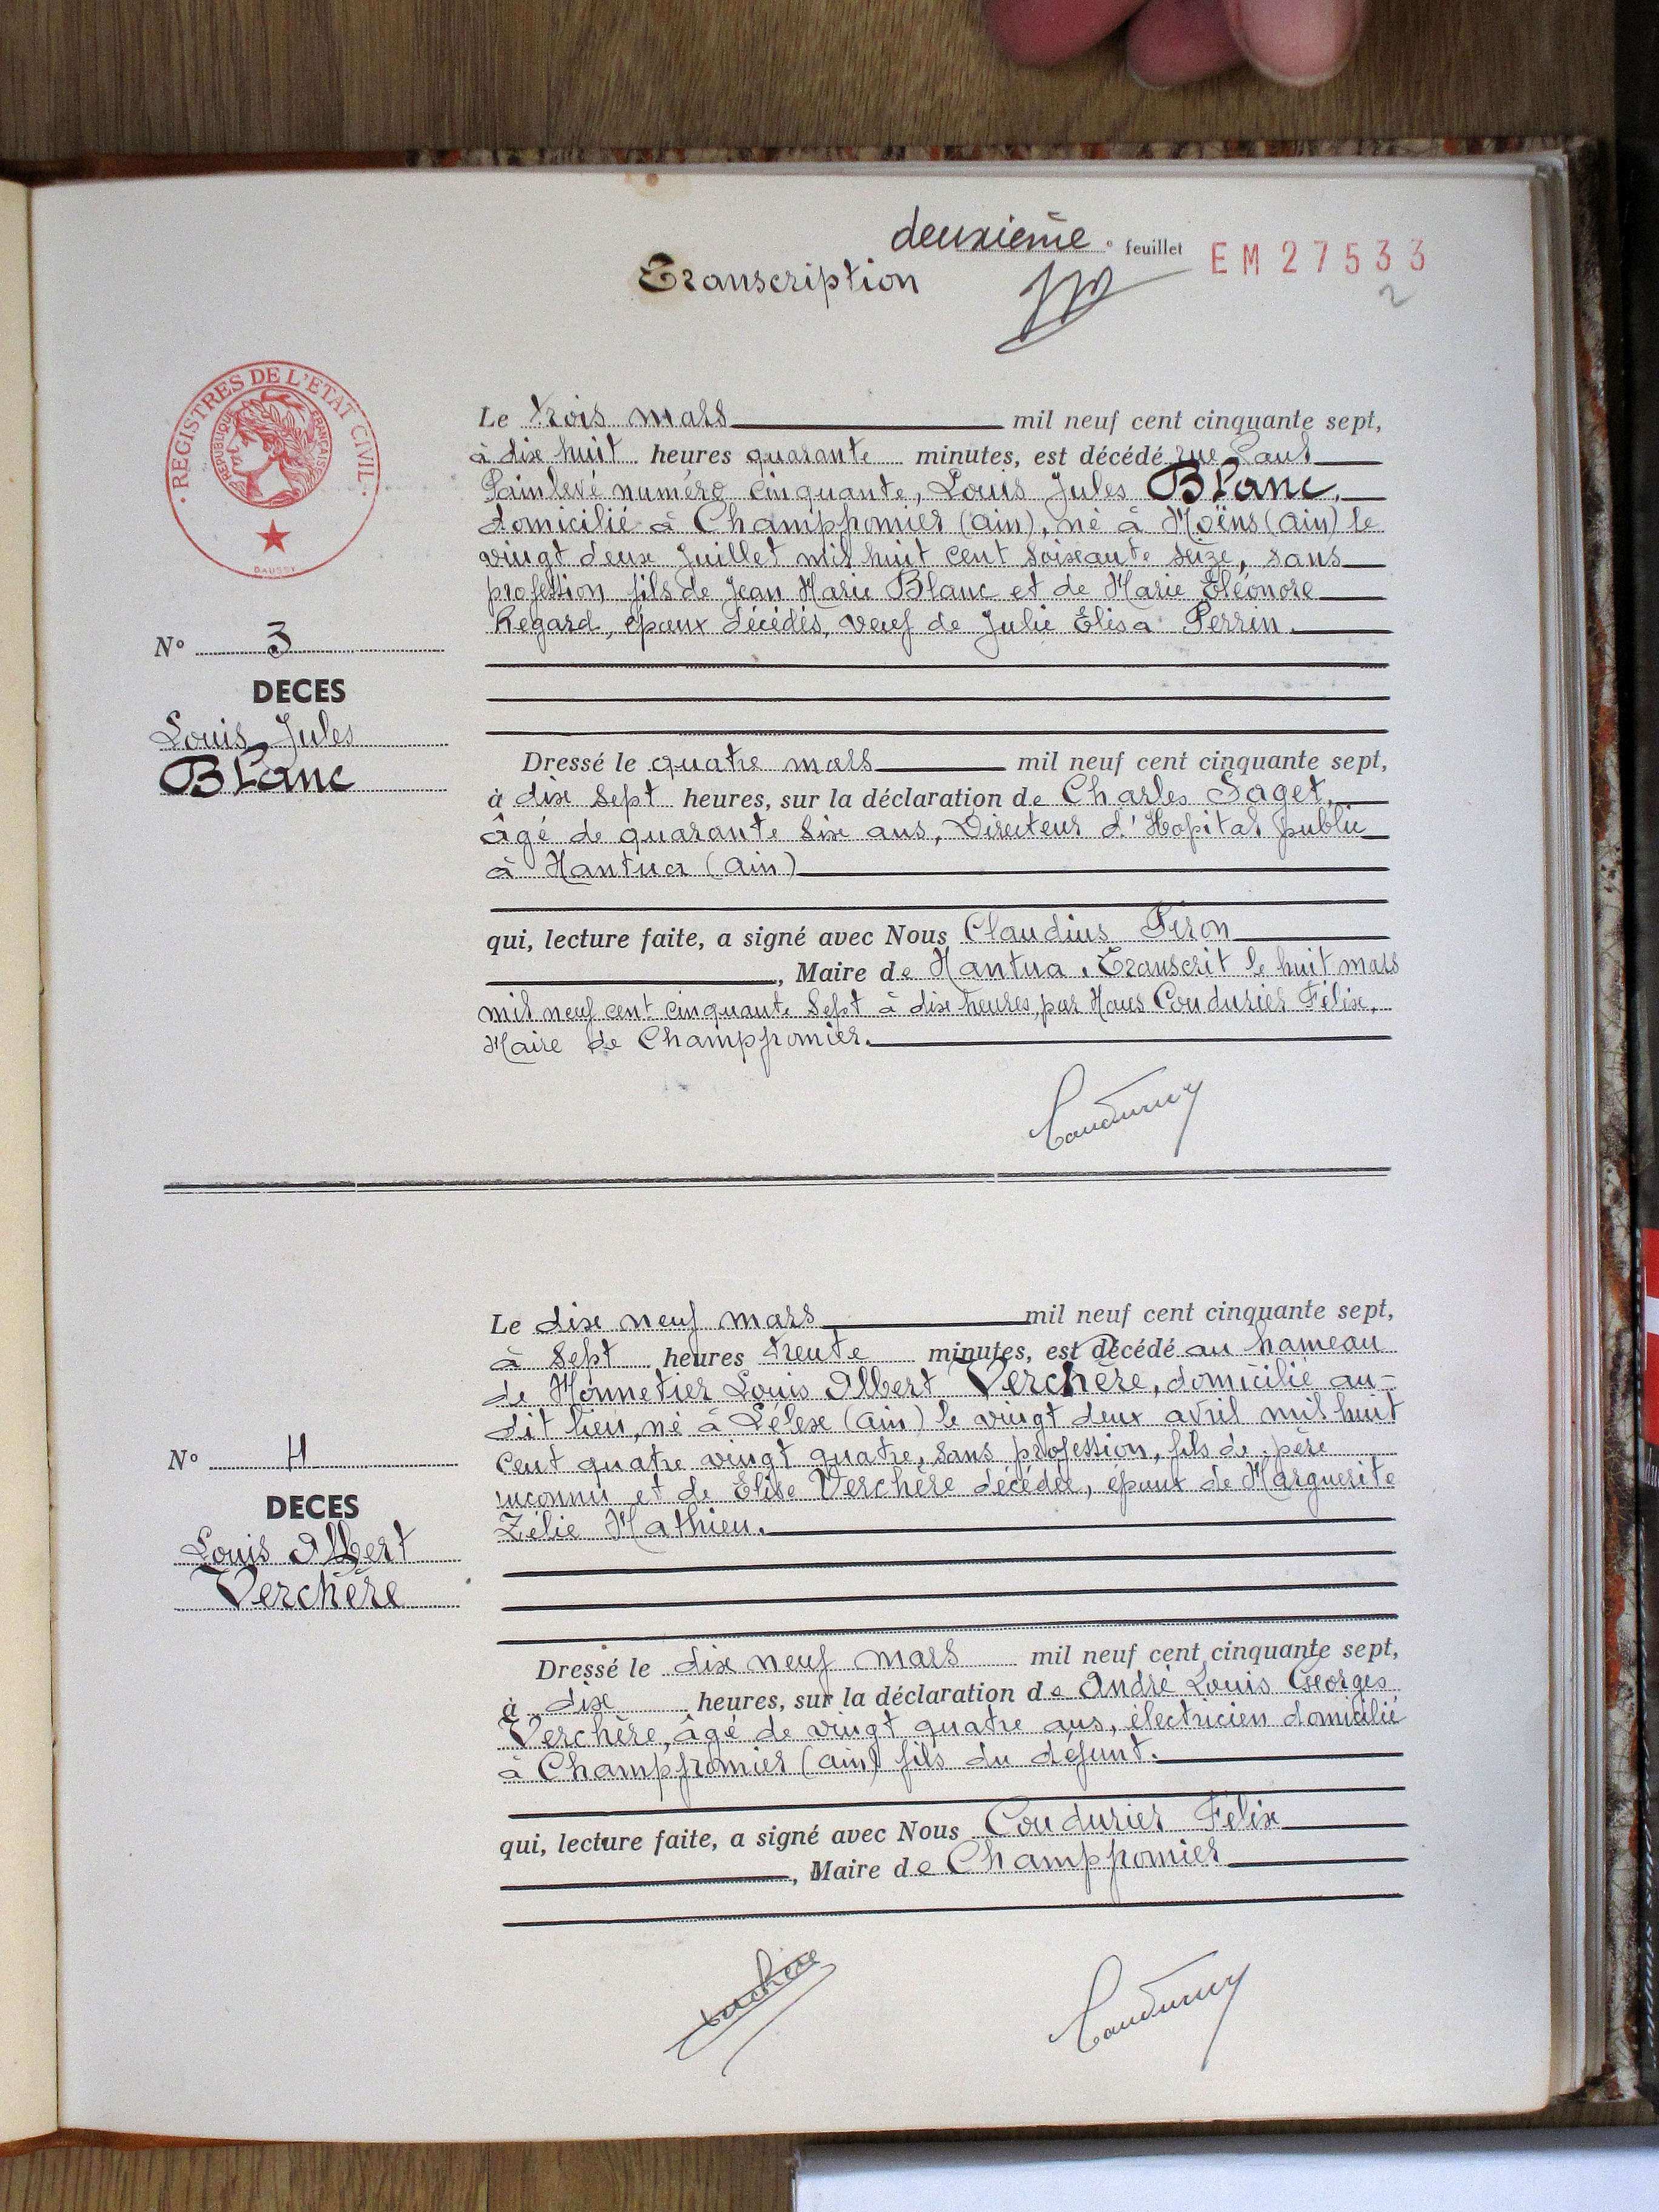 deuxième e feuillet EM 27533
Transcription
2
REGISTRES DE L'ETAT CIVIL
REPUBLIQUE FRANÇAISE
DAUSSY
Le trois mars mil neuf cent cinquante sept,
à dix huit heures quarante minutes, est décédé rue Paul
Painlevé numéro cinquante, Louis Jules Blanc,
domicilié à Champfromier (Ain), né à Moëns (Ain) le
vingt deux Juillet mil huit cent soixante seize, sans
profession fils de Jean Marie Blanc et de Marie Eléonore
Regard, époux décédés, veuf de Julie Elisa Perrin.
N° 3
DECES
Louis Jules
Blanc
Dressé le quatre mars mil neuf cent cinquante sept,
à dix sept heures, sur la déclaration de Charles Saget,
âgé de quarante six ans, Directeur d'Hopital public
à Nantua (Ain)
qui, lecture faite, a signé avec Nous Claudius
, Maire de Nantua. Transcrit le huit mars
mil neuf cent cinquante sept à dix heures, par Nous Coudurier Félix,
Maire de Champfromier.
Le dix neuf mars mil neuf cent cinquante sept,
à sept heures trente minutes, est décédé au hameau
de Monnetier Louis Albert Verchère, domicilié au-
dit lieu, né à Lélex (Ain) le vingt deux avril mil huit
cent quatre vingt quatre, sans profession, fils de père
inconnu et de Elise Verchère décédée, époux de Marguerite
Zélie Mathieu.
N° 4
DECES
Louis Albert
Verchère
Dressé le dix neuf mars mil neuf cent cinquante sept,
à dix heures, sur la déclaration de André Louis Georges
Verchère, âgé de vingt quatre ans, électricien domicilié
à Champfromier (Ain) fils du défunt.
qui, lecture faite, a signé avec Nous Coudurier Felix
, Maire de Champfromier
Verchère